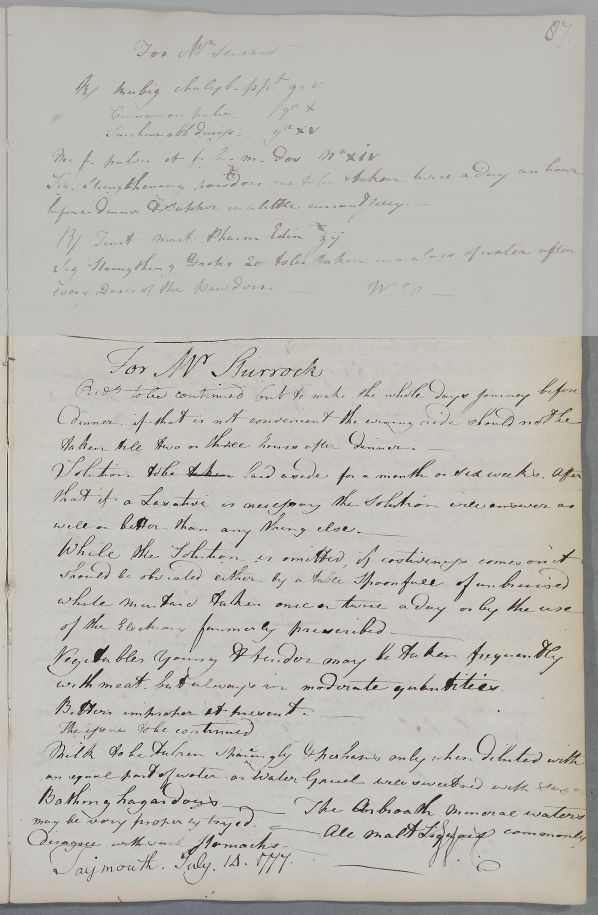 87.
For Mr
℞ Rubig chalyb. ppt gr v
Cinnamon pulv. gr x
gr xv
M. f. pulv. et f. s. m. dos No xiv
Sig. Strengthening powders one to be taken twice a day an hour
before dinner & supper in a little currant jelly.—
℞ Tinct mart Pharm Edin ℥ij
Sig Strengthing Drops 20 to be taken in a glass of water after
every Dose of the Powders.— Wm C—
For Mr Sturrock.
Ride to be continued but to make the whole days journey before
Dinner. if that is not convenient the evening ride should not be
taken till two or three hours after dinner.—
Solution to be taken laid aside for a month or six weeks. After
that if a Laxative is necessary the Solution will answer as
well or better than any thing else.—
While the Solution is omitted, if costiveness comes on it
should be obviated either by a table Spoonfull of unbruised
whole mustard taken once or twice a day or by the use
of the Electuary formerly prescribed.—
Vegetables young & tender may be taken frequently
with meat. but always in moderate quantities.
Bitters improper at present.—
The to be continued
Milk to be taken sparingly & perhaps only when diluted with
an equal part of water or Water Gruel well sweetned with
Bathing hazardous — The Arbroath mineral waters
may be very properly tryed. — Ale malt Liquors commonly
Disagree with such Stomachs.
Taymouth. July. 14. 1777.